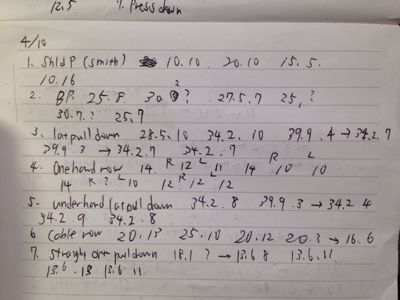 12.5 7. Press down
4/10
1. Shld P (smith) 10.10 20.10 15.5.
10.16
2. BP. 25.8 30. ? 27.5.7 25.?
30.7.? 25.7
3. lat pull down 28.5.10 34.2.10 39.9.4 → 34.2.7
39.9.3 → 34.2.7 34.2.7
R L R L
4. One hand row 14. 12 11 14 10 10
14 R ? L 10 12 R 12 L 12
5. underhand lat pull down 34.2.8 39.9.3 → 34.2 4
34.2.9 34.2.8
6 Cable row 20.13 25.10 20.12 20.? → 16.6
7. straight arm pull down 18.1 ? → 13.6 8 13.6.11
13.6.13 13.6 11